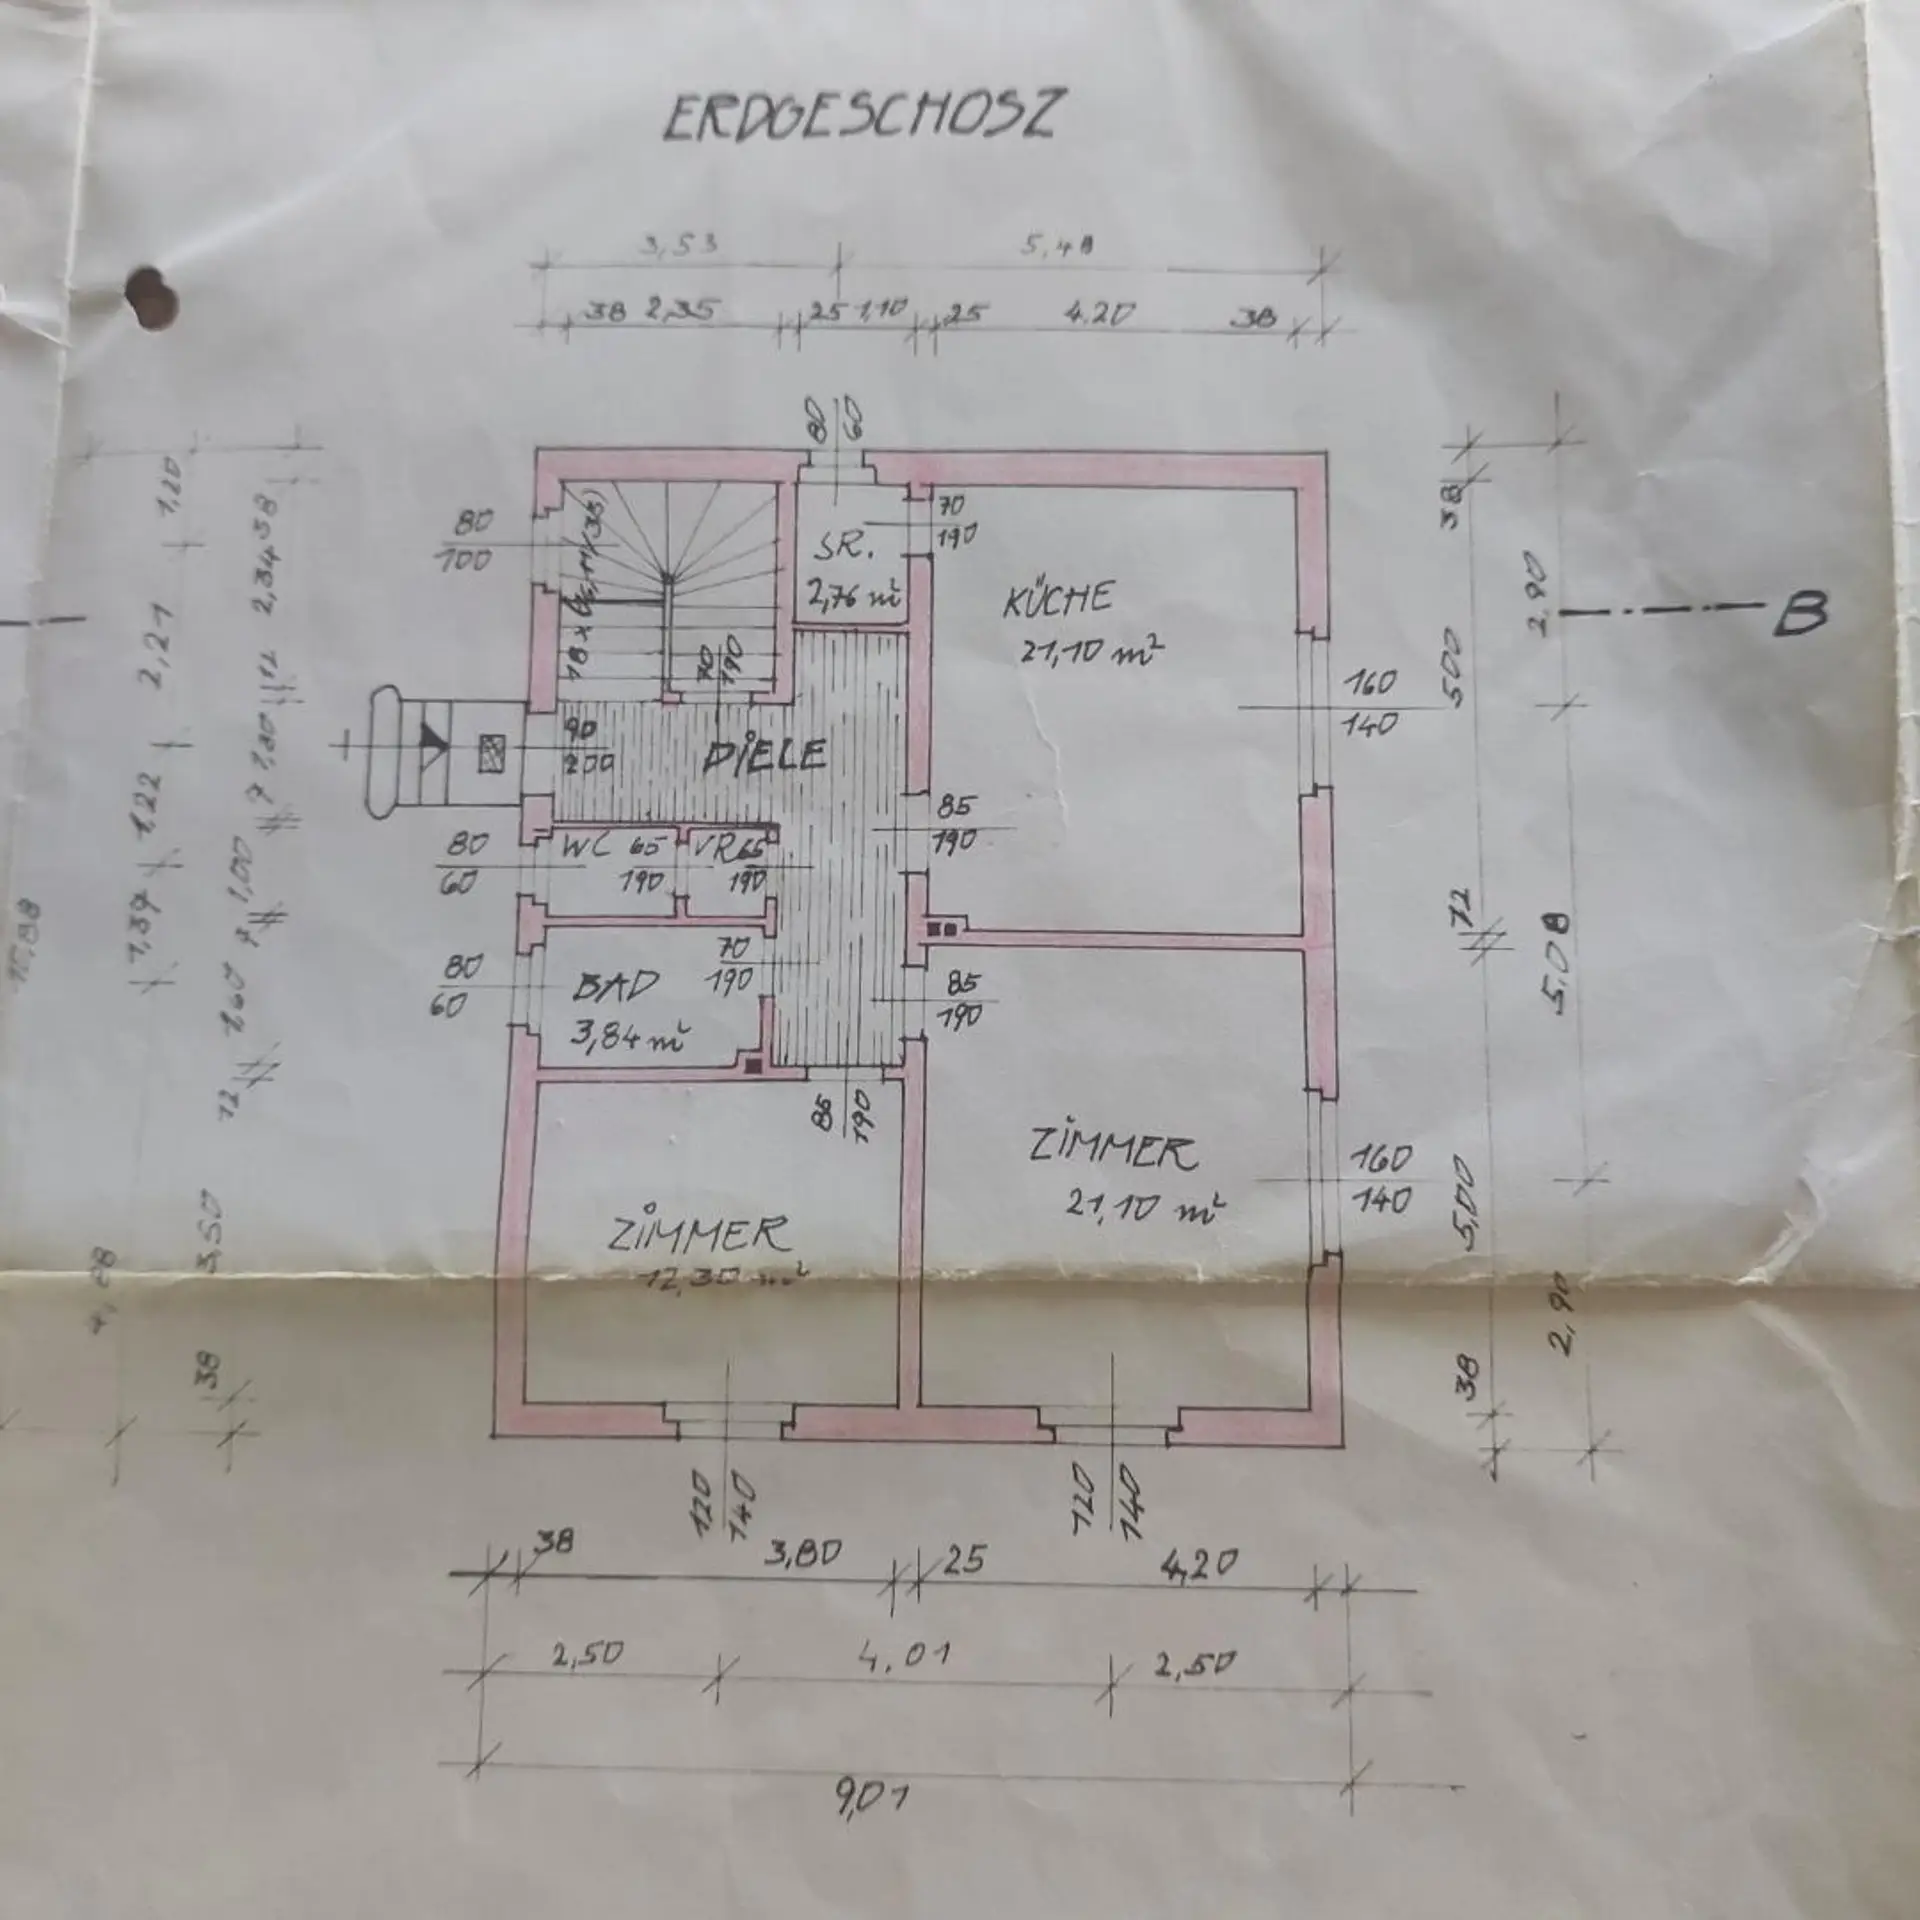 ERDGESCHOSZ
3,53 5,48
38 2,35 25 1,10 25 4.20 38
80 60
80
100
70
190
SR.
2,76 m²
KÜCHE
21,10 m²
70 190
B
38
500
72
5,00
38
2,90
5,08
2,90
160
140
90
200
DIELE
85
190
80
60
WC 65
190
VR 65
190
80
60
BAD
3,84 m²
70
190
85
190
85 190
ZIMMER
12,30 m²
ZIMMER
21,10 m²
160
140
1,20
2,21
1,22
1,39
1,00
12
3,50
38
120 140
120 140
38 3,80 25 4,20
2,50 4,01 2,50
9,01